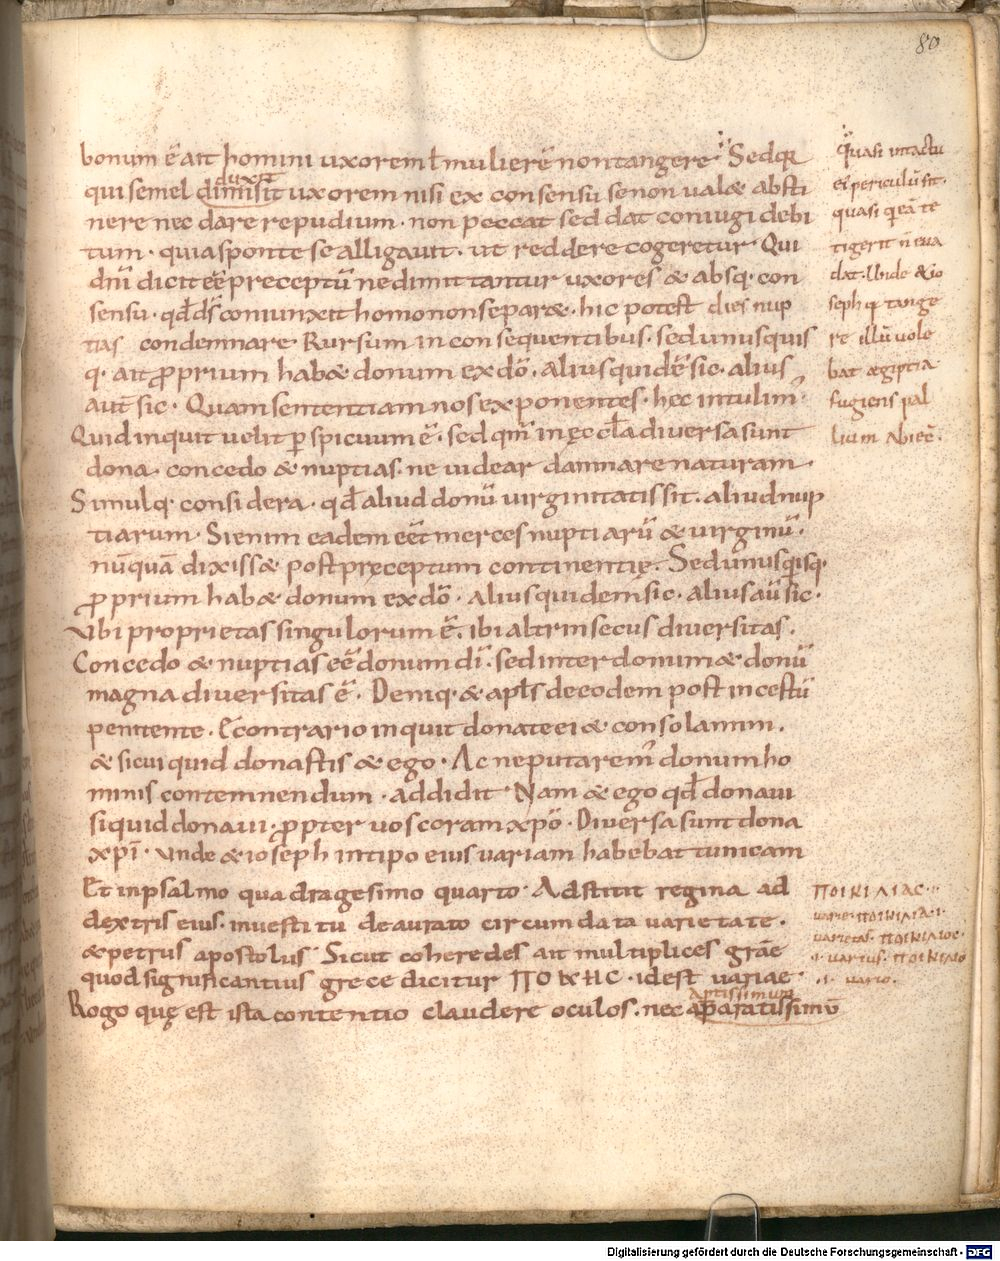 80
bonum ē ait homini uxorem ł mulierē non tangere· Sed qɜ
duxit
qui semel dimisit uxorem nisi ex consensu se non ualæ absti
nere nec dare repudium · non peccat sed dat coniugi debi
tum · quia sponte se alligauit · ut reddere cogeretur· Qui
dn̄i dicit eē preceptū ne dimittantur uxores & absq· con
sensu · qđ d̄s coniunxit homo non separæ · hic potest dies nup
tias condemnare· Rursum in consequentibus· sed unusquis
q· ait ꝓprium habæ donum ex dō · alius quidē sic · alius
aut̄ sic · Quam sententiam nos exponentes · hec intulim᾽
Quid inquit uelit ꝑspicuum ē · sed qm̄ in ęccła diuersa sunt
dona · concedo & nuptias · ne uidear damnare naturam·
Simulq· considera · qđ aliud donū uirginitatis sit · aliud nup
tiarum · Si enim eadem eēt merces nuptiarū & uirginū ·
nūquā dixissæ post pręceptum continentię · Sed unusqisq·
ꝓprium habæ donum ex dō · alius quidem sic · alius aū sic ·
Vbi proprietas singulorum ē · ibi altrinsecus diuersitas ·
Concedo & nuptias eē donum dī · sed inter donum & donū
magna diuersitas ē · Deniq· & apłs de eodem post incestū
penitente · E contrario inquit donate ei & consolamini ·
& si cui quid donastis & ego · Ac ne putarem᾽ donum ho
minis contemnendum · addidit· Nam & ego qđ donaui
si quid donaui · ꝓpter uos coram xp̄o · Diuersa sunt dona
xp̄i · unde & ioseph in tipo eius uariam habebat tunicam
Et in psalmo quadragesimo quarto· Adstitit regina ad
dextris eius · in uestitu deaurato circumdata uarietate ·
& petrus apostolus· Sicut coheredes ait multiplices grāe
quod significantius grece dicitur ΠΟΙΚΗC · id est uariae·
Aptissimum
Rogo quę est ista contentio claudere oculos · nec apparatissimū
quasi in tactu
ei᾽ periculū sit·
quasi q eā te
tigerit n̄ eua
dat· Unde & io
seph q· tange
re illū uole
bat ægiptia·
fugiens pal
lium abiec̄ ·
ΠΟΙΚΙΛΙΑC ·
uarie· ΠΟΙΚΙΛΙΑ · i·
uarietas· ΠΟΙΚΙΛΙΟC·
·i· uarius· ΠΟΙΚΙΛΙΟ
·i· uario·
Digitalisierung gefördert durch die Deutsche Forschungsgemeinschaft - DFG